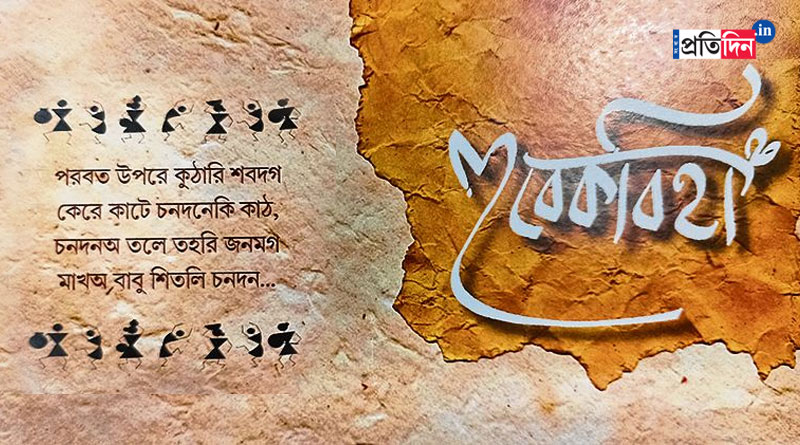 পরবত উপরে কুঠারি শবদগ
কেরে কাটে চনদনেকি কাঠ,
চনদনঅ তলে তহরি জনমগ
মাখঅ বাবু শিতলি চনদন...
প্রতিদিন.in